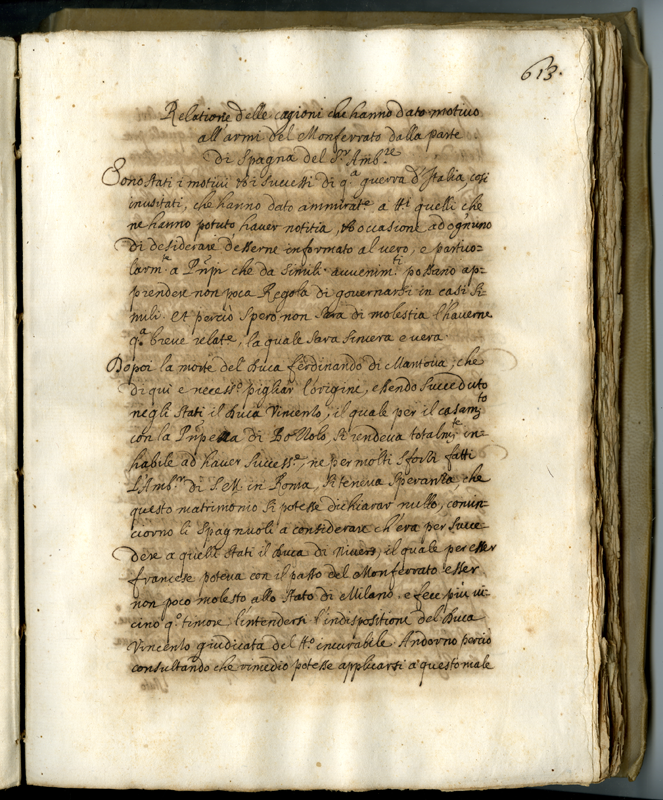 613.
Relatione delle cagioni che hanno dato motivo
all'armi del Monferrato dalla parte
di Spagna del Sr Ambre
Sono stati i motivi et i successi di qa guerra d'Italia così
inusitati, che hanno dato ammirate a tti quelli che
ne hanno potuto haver notitia, et occasione ad ogn'uno
di desiderare d'esserne informato al vero, e particu-
larmte a Prnpi che da simili avvenimti possano ap-
prendere non poca Regola di governarsi in casi si-
mili. Et perciò spero non sarà di molestia l'haverne
qa breve relate, la quale sarà sincera e vera
Dopoi la morte del Duca Ferdinando di Mantova, che
di qui è necesso pigliar l'origine, essendo succeduto
negli stati il Duca Vincenzo, il quale per il casamto
con la Prnpessa di Bozzolo, si rendeva totalmte in-
habile ad haver success.e, ne per molti sforzi fatti
l'Ambr di S. M. in Roma, si teneva speranza, che
questo matrimonio si potesse dichiarar nullo, comin-
ciorno li Spagnuoli a considerare ch'era per succe-
dere a quelli stati il Duca di Nivers, il quale per esser
francese poteva con il passo del Monferrato esser
non poco molesto allo stato di Milano. e fece più vi-
cino qo timore l'intendersi l'indispositione del Duca
Vincenzo giudicata del tto incurabile. Andorno perciò
consultando che rimedio potesse applicarsi a questo male